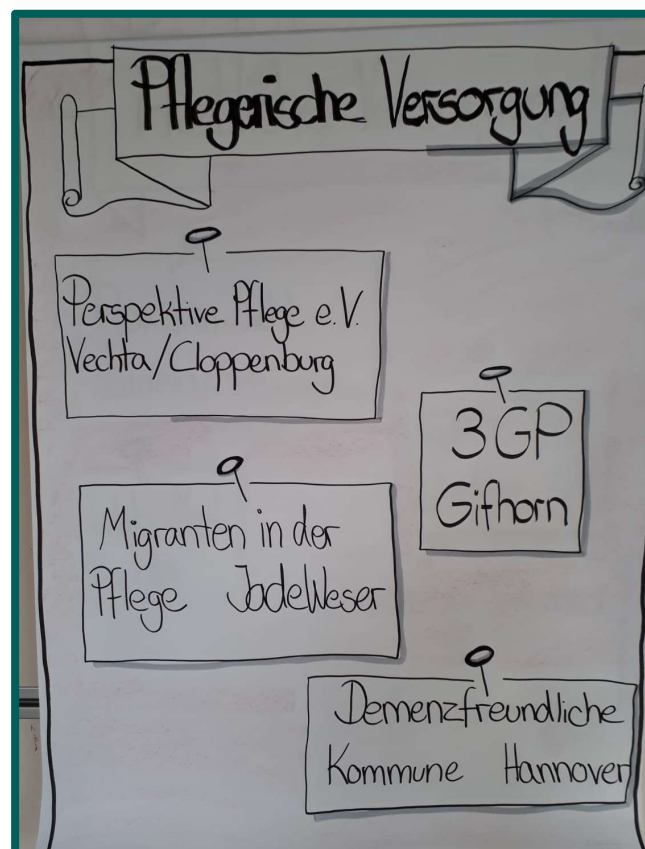 Pflegerische Versorgung
Perspektive Pflege e.V.
Vechta/Cloppenburg
3GP
Gifhorn
Migranten in der
Pflege JadeWeser
Demenzfreundliche
Kommune Hannover